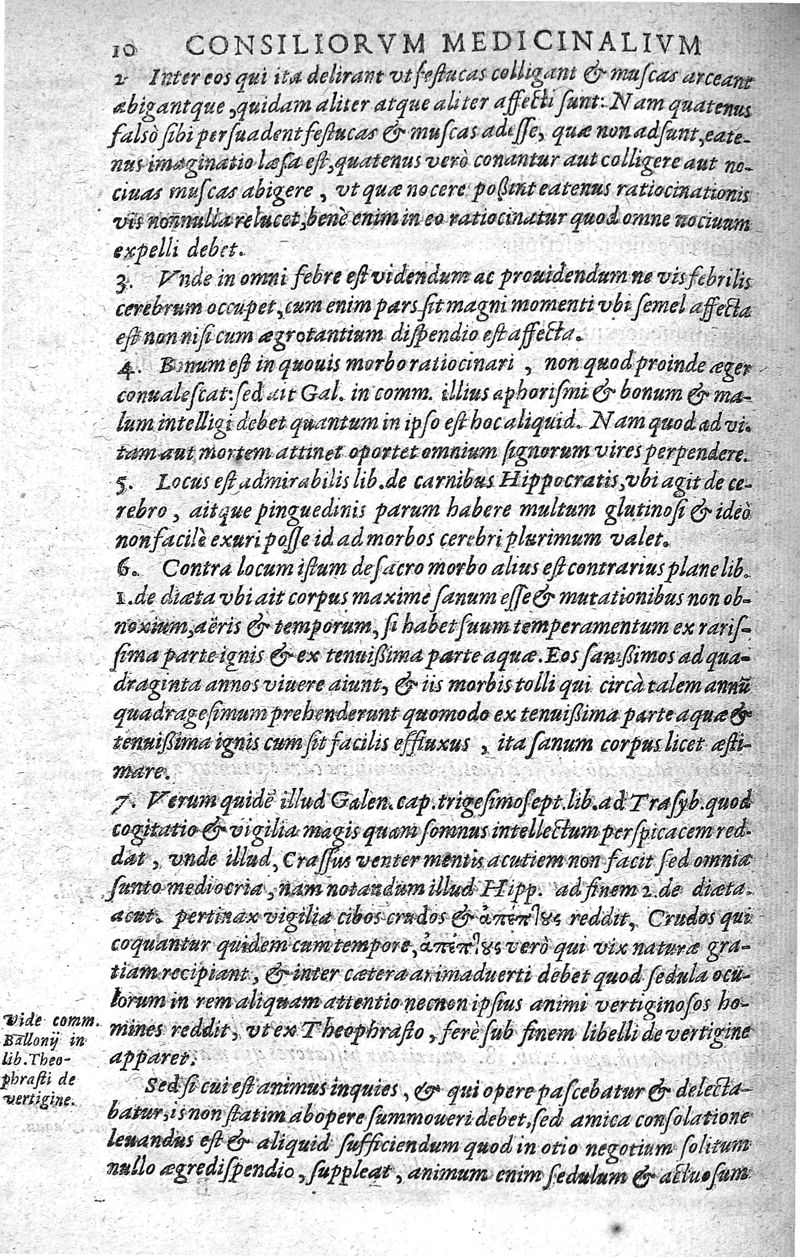 10 CONSILIORVM MEDICINALIVM
2 Inter eos qui ita delirant vt festucas colligant & muscas arceant
abigantque, quidam aliter atque aliter affecti sunt: Nam quatenus
falsò sibi persuadent festucas & muscas adesse, quæ non adsunt, eate-
nus imaginatio læsa est, quatenus verò conantur aut colligere aut no-
ciuas muscas abigere, vt quæ nocere poßint eatenus ratiocinationis
vis nonnulla relucet, benè enim in eo ratiocinatur quod omne nociuum
expelli debet.
3. Vnde in omni febre est videndum ac prouidendum ne vis febrilis
cerebrum occupet, cum enim pars sit magni momenti vbi semel affecta
est non nisi cum ægrotantium dispendio est affecta.
4. Bonum est in quouis morbo ratiocinari, non quod proinde æger
conualescat: sed ait Gal. in comm. illius aphorismi & bonum & ma-
lum intelligi debet quantum in ipso est hoc aliquid. Nam quod ad vi-
tam aut mortem attinet oportet omnium signorum vires perpendere.
5. Locus est admirabilis lib. de carnibus Hippocratis, vbi agit de ce-
rebro, aitque pinguedinis parum habere multum glutinosi & ideò
non facilè exuri posse id ad morbos cerebri plurimum valet.
6. Contra locum istum de sacro morbo alius est contrarius plane lib.
1. de diæta vbi ait corpus maximè sanum esse & mutationibus non ob-
noxium, aëris & temporum, si habet suum temperamentum ex raris-
sima parte ignis & ex tenuißima parte aquæ. Eos sanißimos ad qua-
draginta annos viuere aiunt, & iis morbis tolli qui circà talem annū
quadragesimum prehenderunt quomodo ex tenuißima parte aquæ &
tenuißima ignis cum sit facilis effluxus, ita sanum corpus licet æsti-
mare.
7. Verum quidē illud Galen. cap. trigesimosept. lib. ad Trasyb. quod
cogitatio & vigilia magis quam somnus intellectum perspicacem red-
dat, vnde illud, Crassus venter mentis acutiem non facit sed omnia
sunto mediocria, nam notandum illud Hipp. ad finem 2. de diæta.
acut. pertinax vigilia cibos crudos & ἀπέπτους reddit, Crudos qui
coquantur quidem cum tempore, ἀπέπτους verò qui vix naturæ gra-
tiam recipiant, & inter cætera animaduerti debet quod sedula ocu-
lorum in rem aliquam attentio necnon ipsius animi vertiginosos ho-
mines reddit, vt ex Theophrasto, ferè sub finem libelli de vertigine
apparet.
Vide comm.
Ballonij in
lib. Theo-
phrasti de
vertigine.
Sed si cui est animus inquies, & qui opere pascebatur & delecta-
batur, is non statim ab opere summoueri debet, sed amica consolatione
leuandus est & aliquid sufficiendum quod in otio negotium solitum
nullo ægre dispendio, suppleat, animum enim sedulum & actuosum